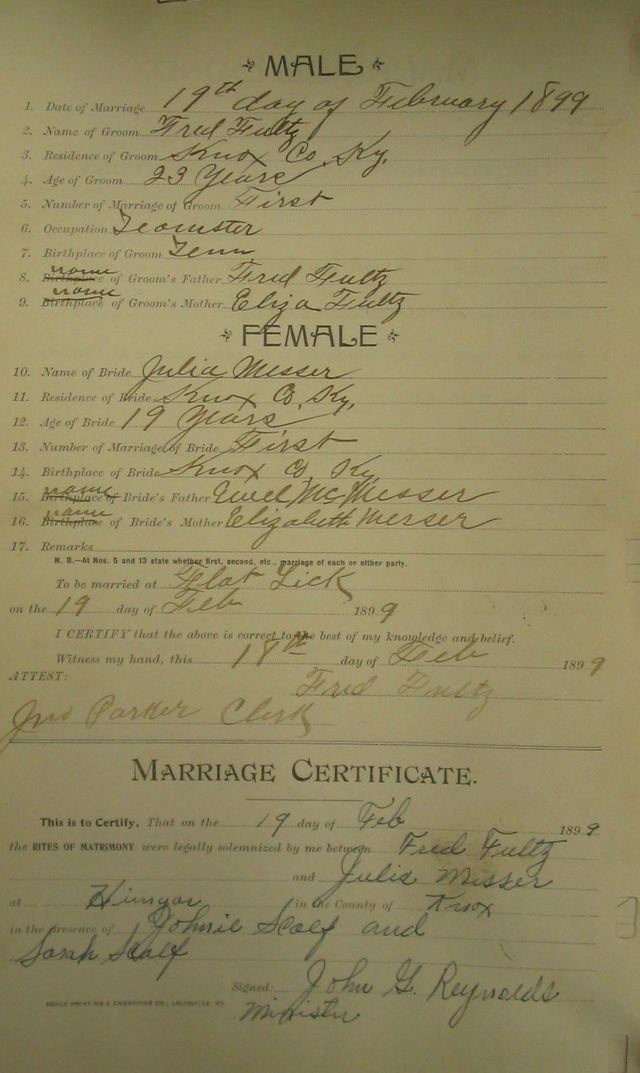 MALE
1. Date of Marriage 19th day of February 1899
2. Name of Groom Fred Fultz
3. Residence of Groom Knox Co. Ky.
4. Age of Groom 23 Years
5. Number of Marriage of Groom First
6. Occupation Teamster
7. Birthplace of Groom Tenn
8. Birthplace name of Groom's Father Fred Fultz
9. Birthplace name of Groom's Mother Eliza Fultz
FEMALE
10. Name of Bride Julia Messer
11. Residence of Bride Knox Co. Ky.
12. Age of Bride 19 Years
13. Number of Marriage of Bride First
14. Birthplace of Bride Knox Co Ky
15. Birthplace name of Bride's Father Mc Messer
16. Birthplace name of Bride's Mother Elizabeth Messer
17. Remarks
N. B.—At Nos. 5 and 13 state whether first, second, etc., marriage of each or either party.
To be married at Flat Lick
on the 19 day of Feb 1899
I CERTIFY that the above is correct to the best of my knowledge and belief.
Witness my hand, this 18th day of Feb 1899
ATTEST: Fred Fultz
Jno Parker Clerk
MARRIAGE CERTIFICATE.
This is to Certify, That on the 19 day of Feb 1899
the RITES OF MATRIMONY were legally solemnized by me between Fred Fultz
and Julia Misser
at Hinyar in the County of Knox
in the presence of Johnie Scalf and
Sarah Scalf
Signed: John G. Reynolds
Minister